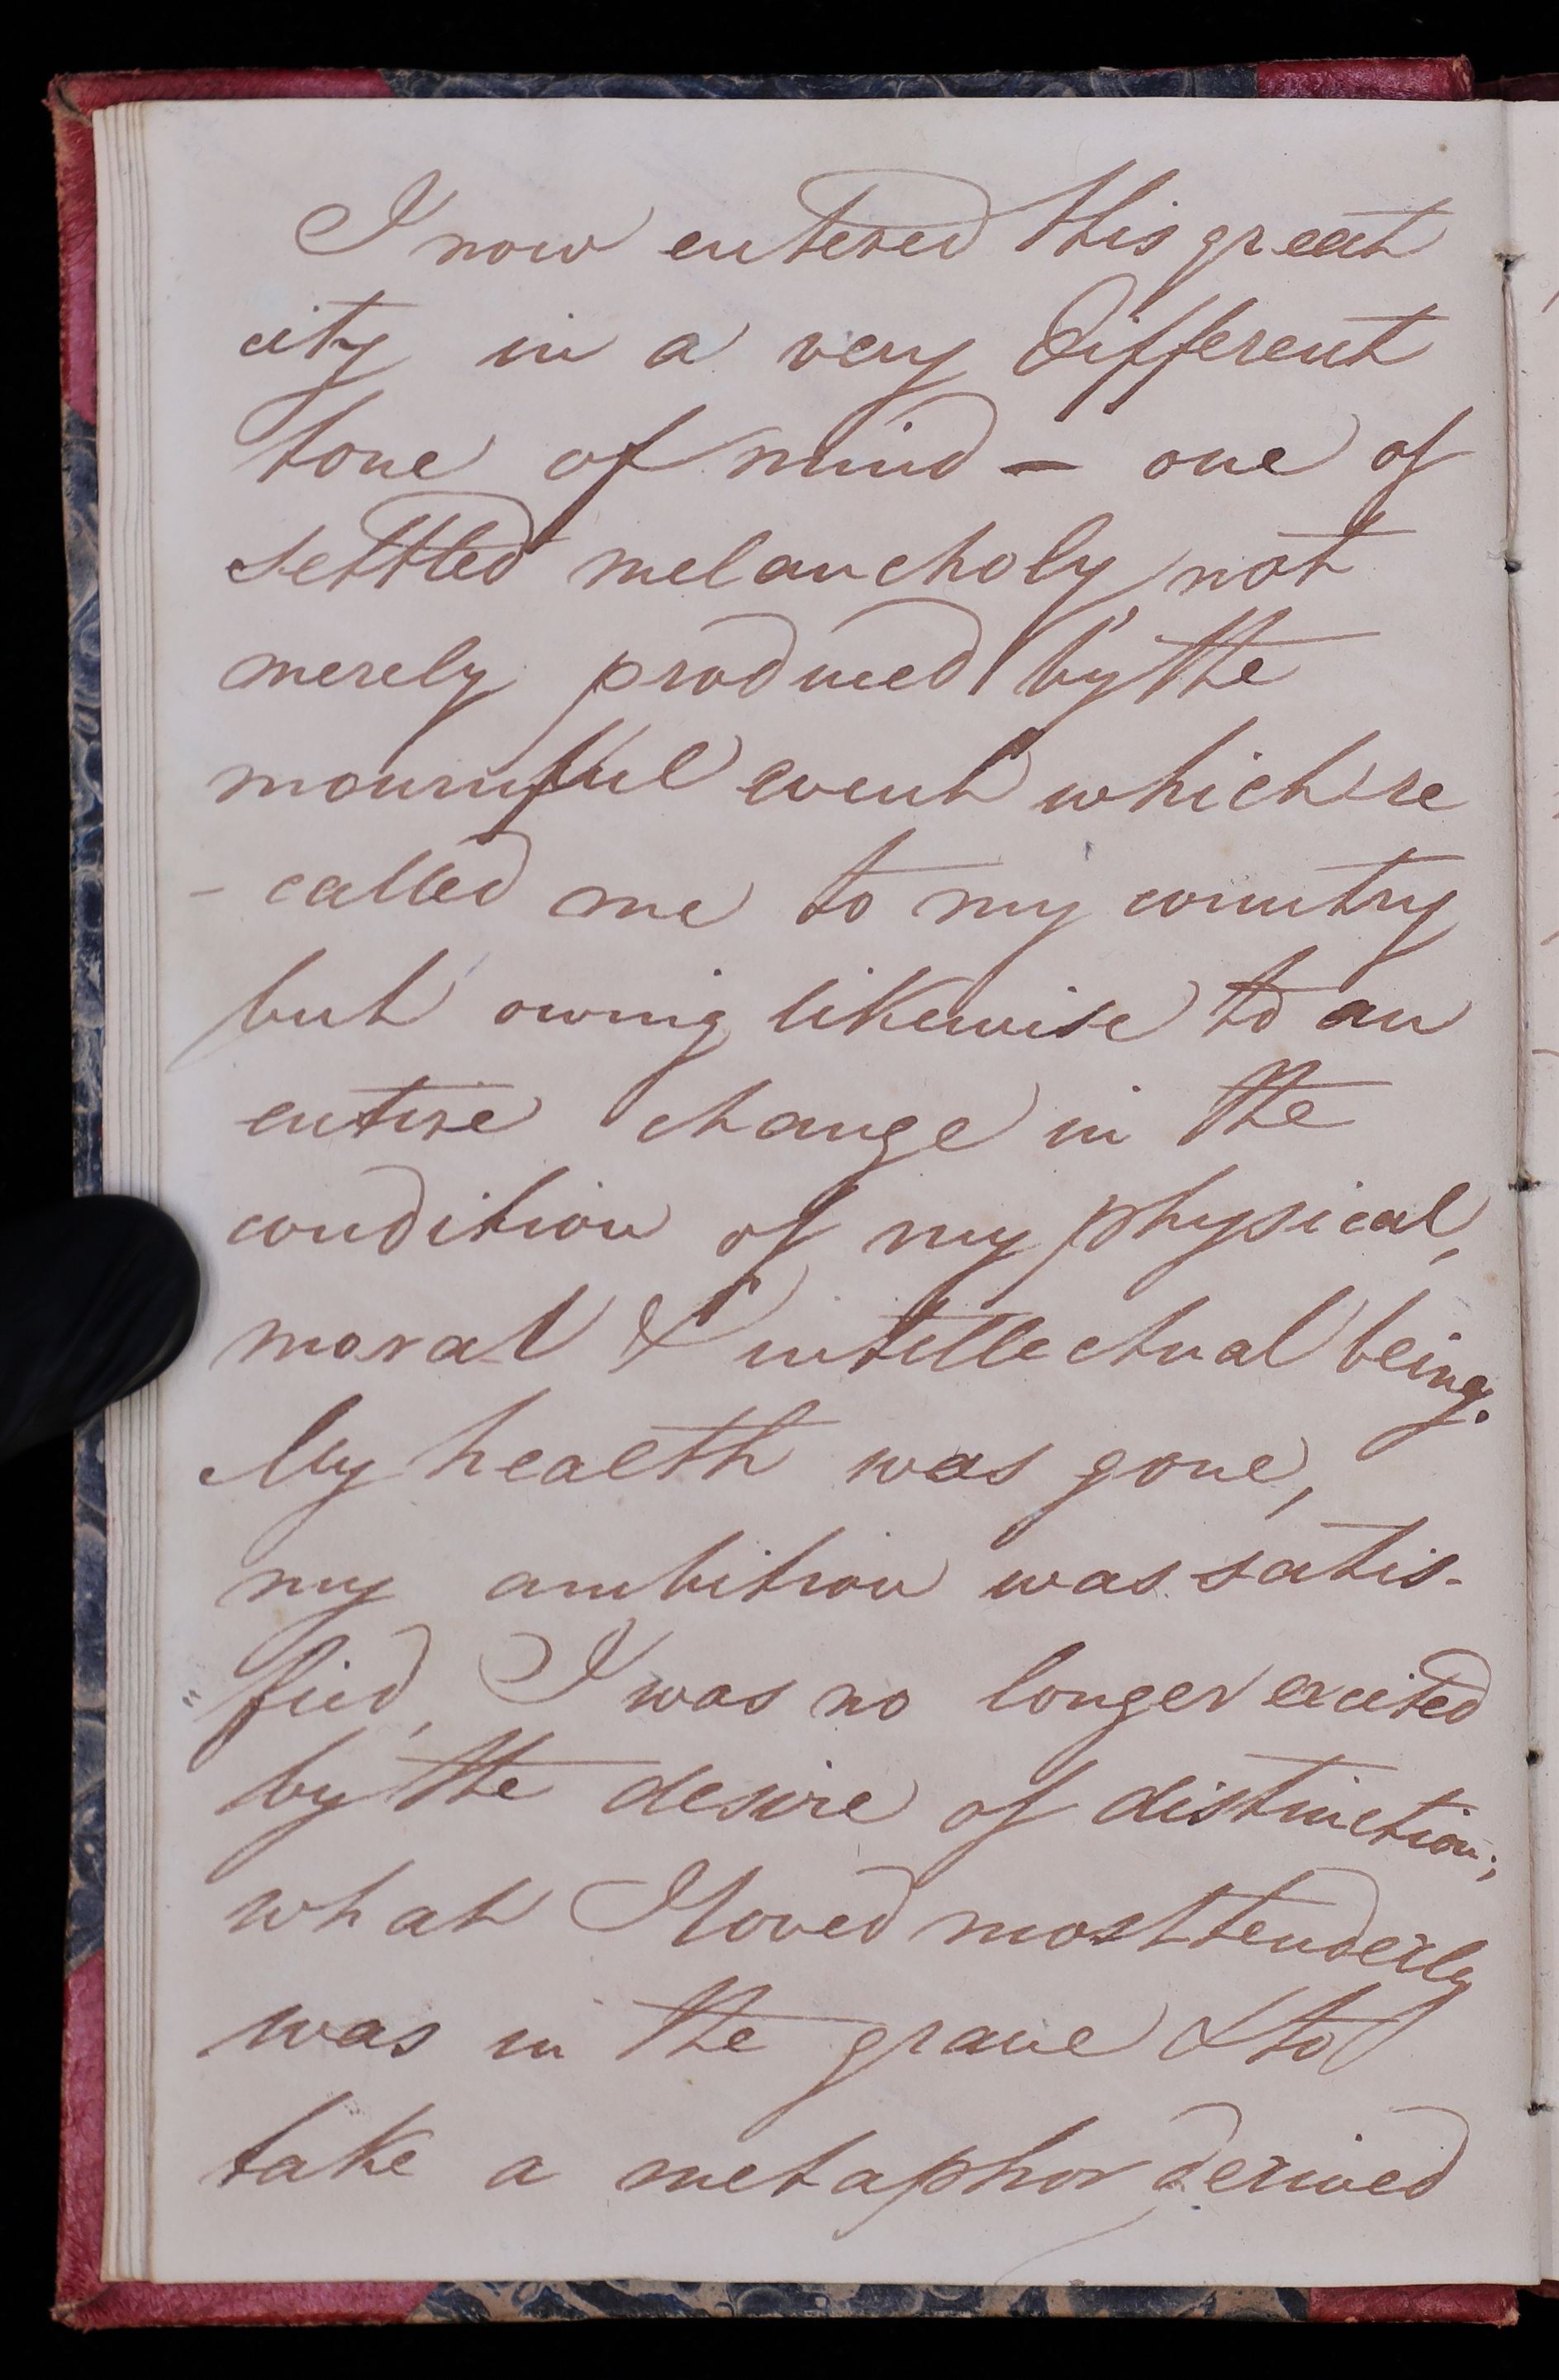 I now entered this great
city in a very different
tone of mind – one of
settled melancholy not
merely produced by the
mournful event which re
- called me to my country
but owing likewise to an
entire change in the
condition of my physical,
moral & intellectual being.
My health was gone,
my ambition was satis-
"fied, I was no longer excited
by the desire of distinction;
what I loved most tenderly
was in the grave & to
take a metaphor derived